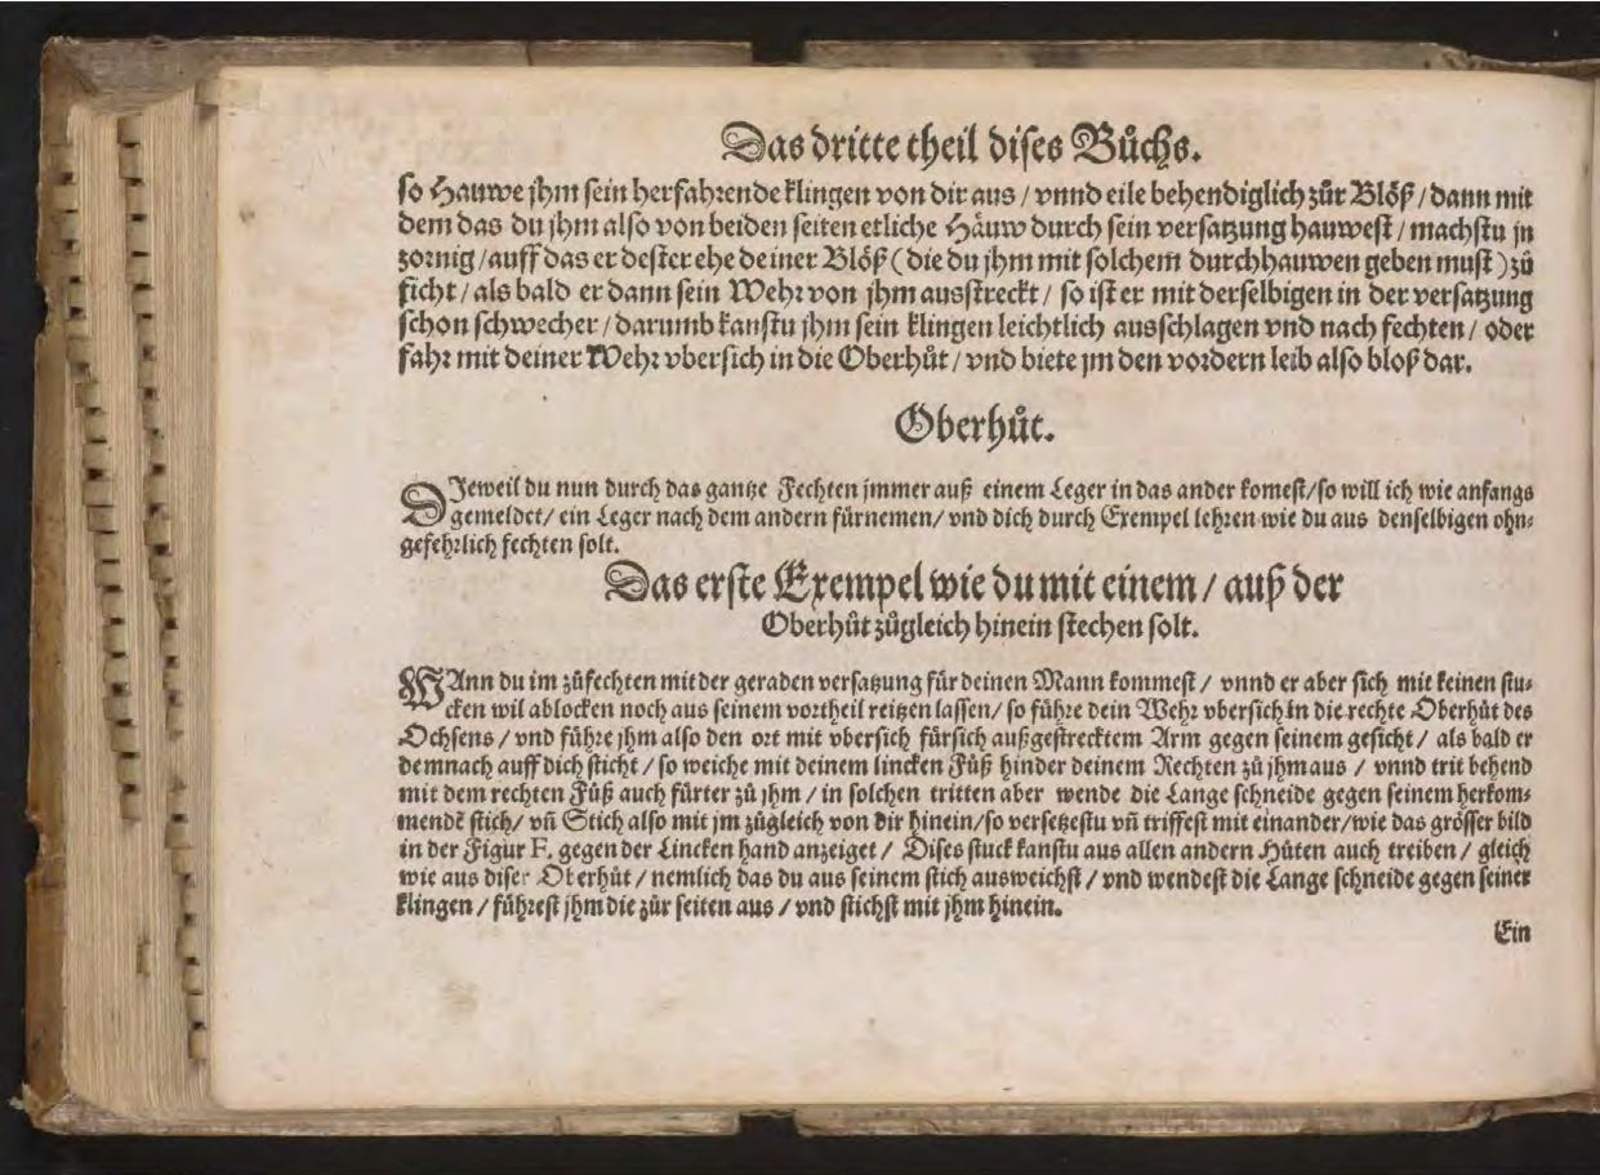 Das dritte theil dises Bůchs.
so Hauwe jhm sein herfahrende klingen von dir aus / vnnd eile behendiglich zůr Blöß / dann mit
dem das du jhm also von beiden seiten etliche Häuw durch sein versatzung hauwest / machstu jn
zornig / auff das er dester ehe deiner Blöß (die du jhm mit solchem durchhauwen geben must) zů
ficht / als bald er dann sein Wehr von jhm ausstreckt / so ist er mit derselbigen in der versatzung
schon schwecher / darumb kanstu jhm sein klingen leichtlich ausschlagen vnd nach fechten / oder
fahr mit deiner Wehr vbersich in die Oberhůt / vnd biete jm den vordern leib also bloß dar.
Oberhůt.
DJeweil du nun durch das gantze Fechten jmmer auß einem Leger in das ander komest/so will ich wie anfangs
gemeldet/ ein Leger nach dem andern fürnemen/ vnd dich durch Exempel lehren wie du aus denselbigen ohn⸗
gefehrlich fechten solt.
Das erste Exempel wie du mit einem / auß der
Oberhůt zůgleich hinein stechen solt.
WAnn du im zůfechten mit der geraden versatzung für deinen Mann kommest / vnnd er aber sich mit keinen stu⸗
cken wil ablocken noch aus seinem vortheil reitzen lassen/ so führe dein Wehr vbersich in die rechte Oberhůt des
Ochsens / vnd führe jhm also den ort mit vbersich fürsich außgestrecktem Arm gegen seinem gesicht / als bald er
demnach auff dich sticht / so weiche mit deinem lincken Fůß hinder deinem Rechten zů jhm aus / vnnd trit behend
mit dem rechten Fůß auch fürter zů jhm / in solchen tritten aber wende die Lange schneide gegen seinem herkom⸗
mendẽ stich/ vñ Stich also mit jm zůgleich von dir hinein/so versetzestu vñ triffest mit einander/wie das grösser bild
in der Figur F. gegen der Lincken hand anzeiget / Dises stuck kanstu aus allen andern Hůten auch treiben / gleich
wie aus diser Oberhůt / nemlich das du aus seinem stich ausweichst / vnd wendest die Lange schneide gegen seiner
klingen / führest jhm die zůr seiten aus / vnd stichst mit jhm hinein.
Ein